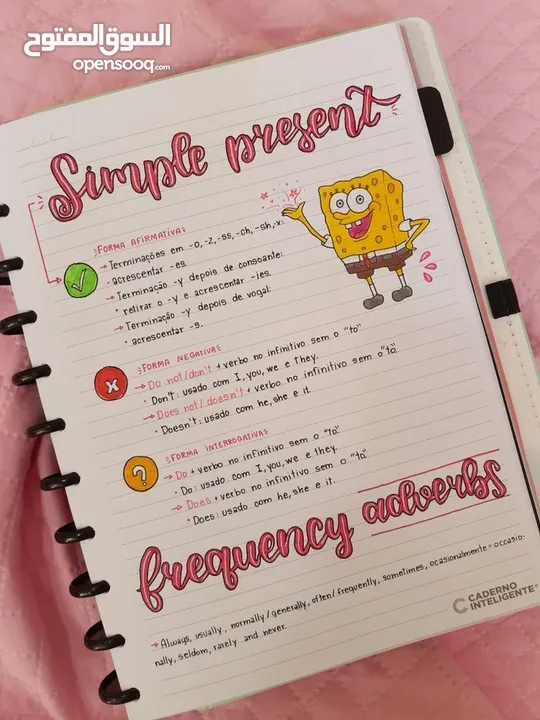 السوق المفتوح
opensooq.com
Simple present
FORMA AFIRMATIVA:
→ Terminações em -o, -z, -ss, -ch, -sh, -x:
• acrescentar -es.
→ Terminação -y depois de consoante:
• retirar o -y e acrescentar -ies.
→ Terminação -y depois de vogal:
• acrescentar -s.
x
FORMA NEGATIVA:
→ Do not/don't + verbo no infinitivo sem o "to"
• Don't: usado com I, you, we e they.
→ Does not/doesn't + verbo no infinitivo sem o "to"
• Doesn't: usado com he, she e it.
?
FORMA INTERROGATIVA:
→ Do + verbo no infinitivo sem o "to"
• Do: usado com I, you, we e they.
→ Does + verbo no infinitivo sem o "to"
• Does: usado com he, she e it.
frequency adverbs
→ Always, usually, normally/generally, often/frequently, sometimes, ocasionalmente = occasio-
nally, seldom, rarely and never.
CADERNO
INTELIGENTE®